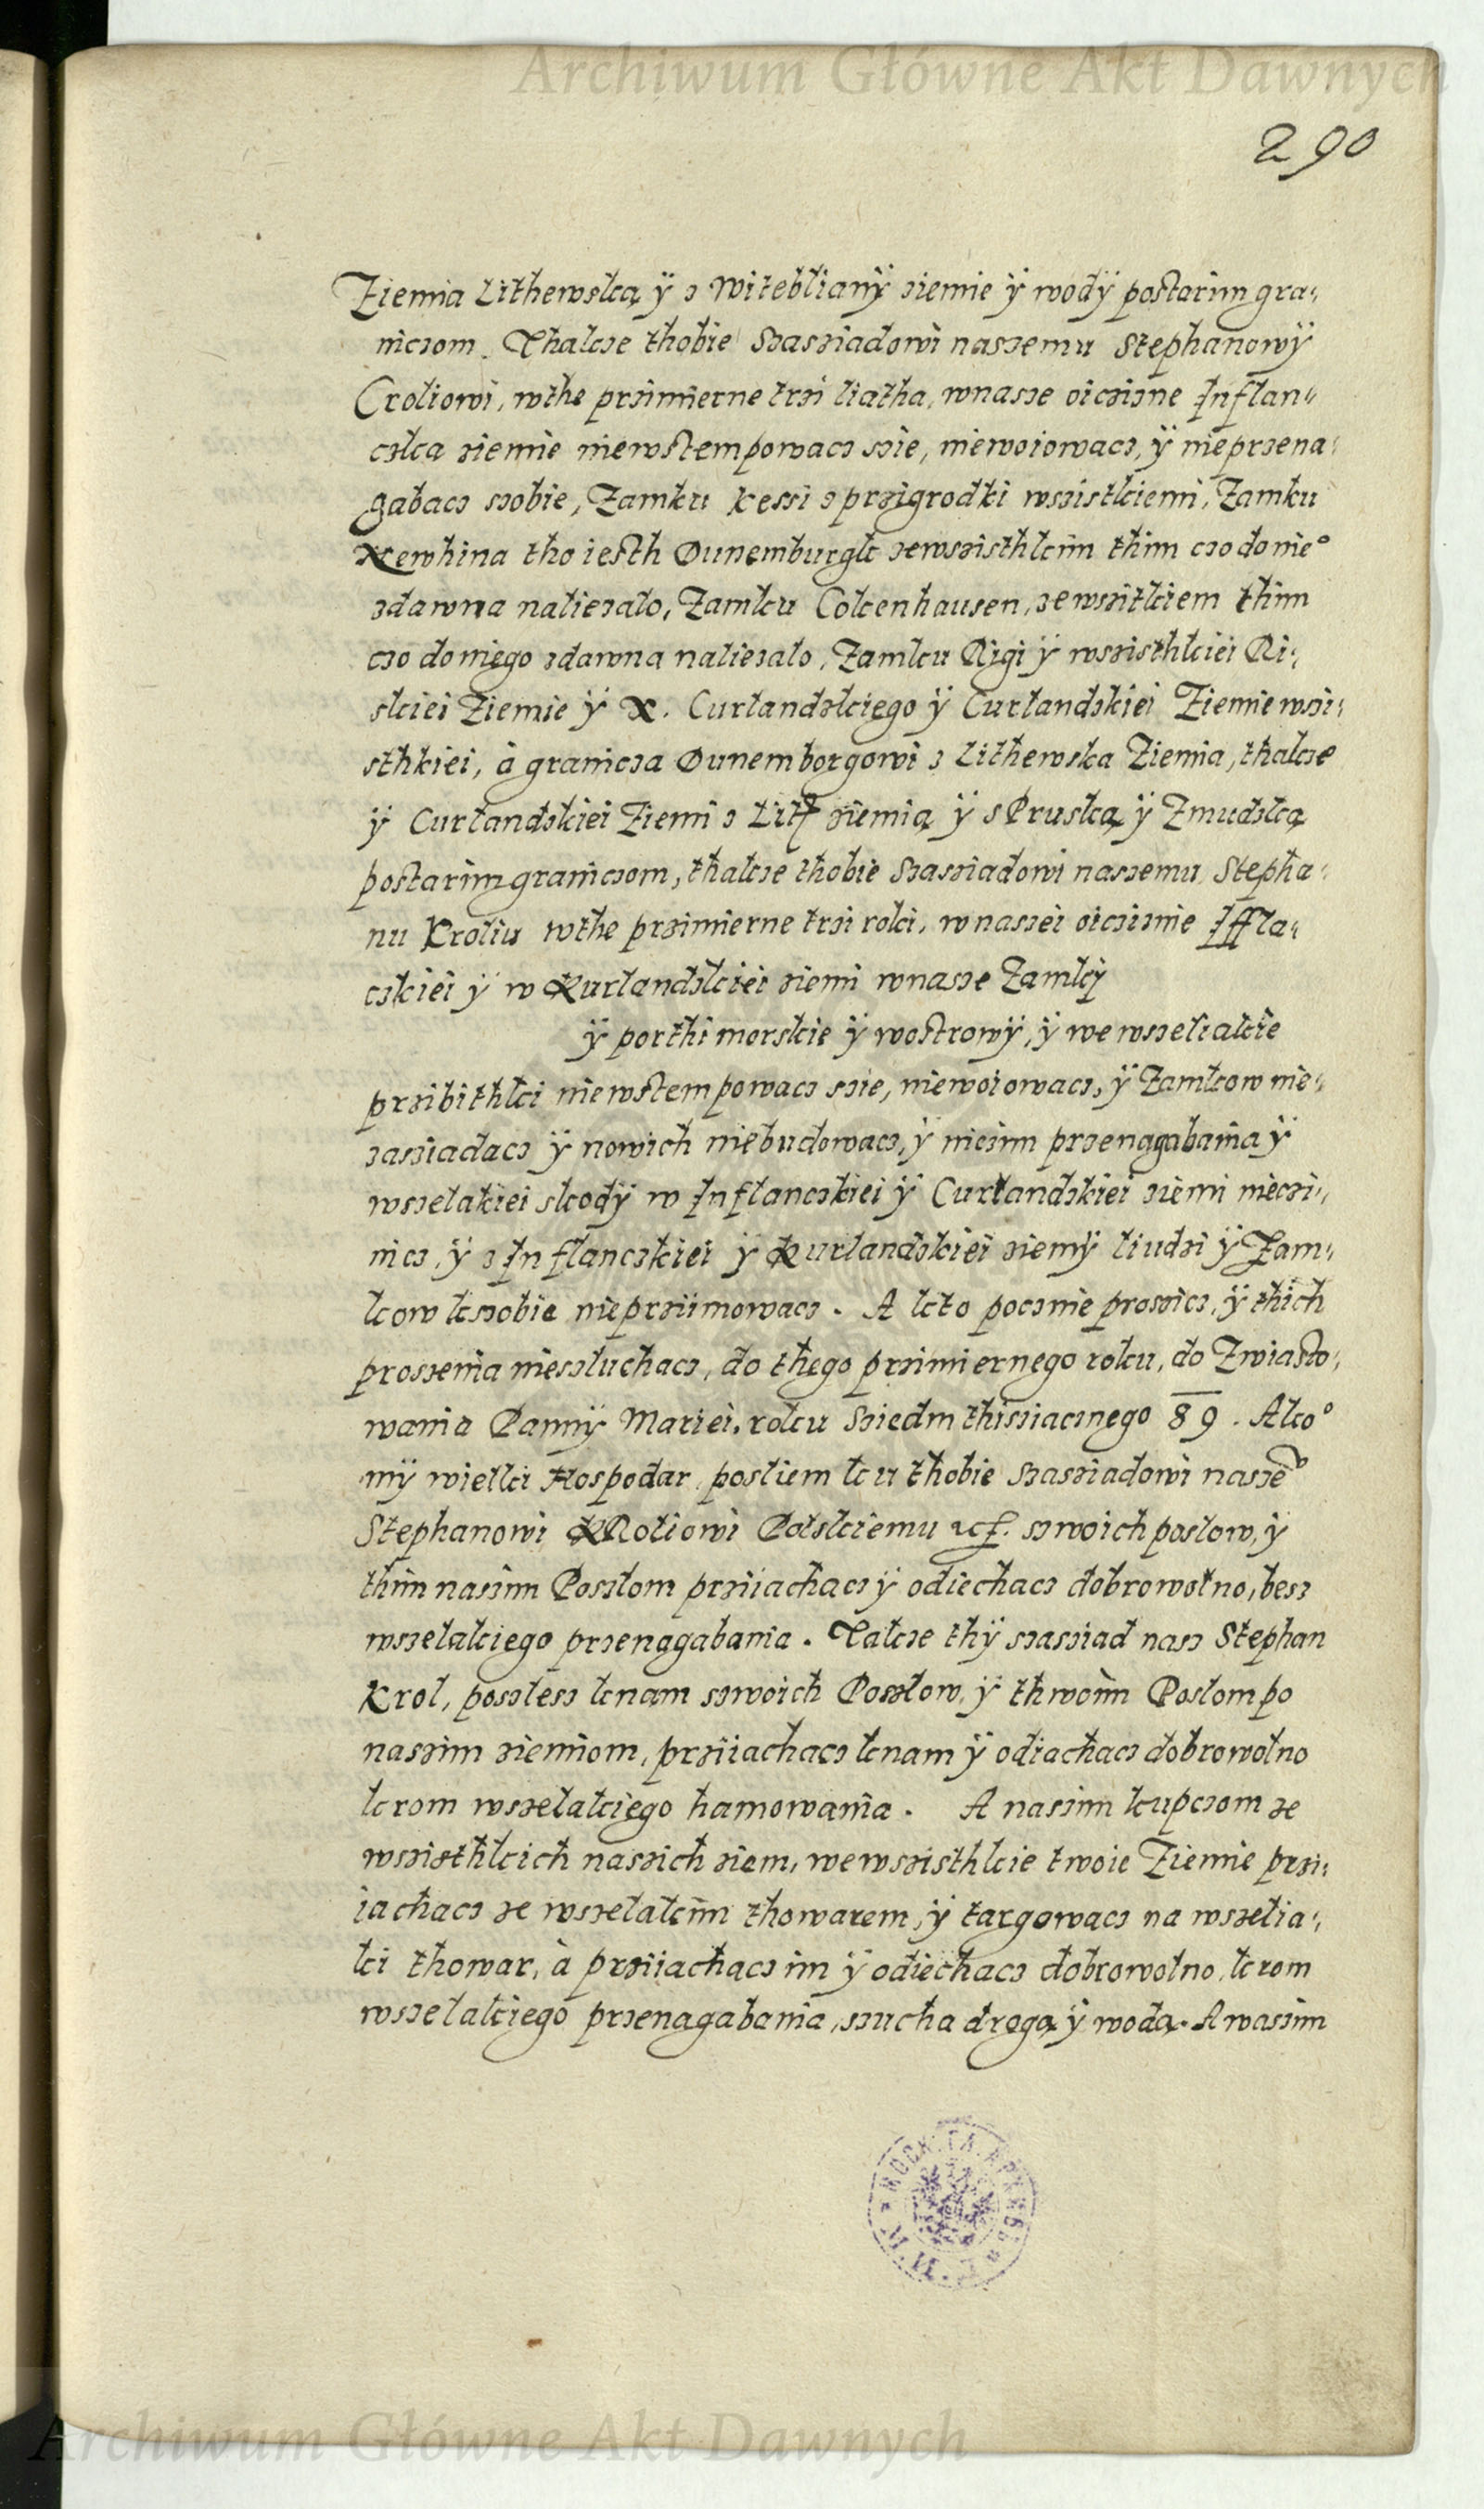 Archiwum Główne Akt Dawnych
290
Ziemia Lithewską ÿ z Witeblianÿ ziemie ÿ wodÿ postarim gra:
niczom. Thakze thobie Szasziadowi naszemu Stephanowÿ
Croliowi, wthe przimierne trzi liatha, wnasze oiczizne Inflan:
czka ziemie niewstempowacz szie, niewoiowacz, ÿ nieprzena:
gabacz szobie, Zamku Kessi z przigrodki wszistkiemi, Zamku
Newhina tho iesth Dunemburgk zewszisthkim thim czo do nieº
zdawna naliezalo, Zamku Cokenhausen, zewszitkiem thim
czo do niego zdawna naliezalo, Zamku Rigi ÿ wszisthkiei Ri:
skiei Ziemie ÿ X. Curlandzkiego ÿ Curlandzkiei Ziemie wszi:
sthkiei, à granicza Dunemborgowi z Lithewska Ziemia, thakze
ÿ Curlandzkiei Ziemi z Lit ziemią ÿ s Pruską ÿ Zmudzką
postarim graniczom, thakze thobie Szasziadowi naszemu Stepha:
nu Kroliu wthe przimierne trzi roki, wnaszei oicziznie Iffla:
czkiei ÿ w Kurlandzkiei ziemi wnasze Zamki
ÿ porthi morskie ÿ wostrowÿ, ÿ we wszeliakie
przibithki niewstempowacz szie, niewoiowacz, ÿ Zamkow nie:
zasziadacz ÿ nowich niebudowacz, ÿ niczim przenagabania ÿ
wszelakiei skodÿ w Inflanczkiei ÿ Curlandzkiei ziemi nieczi:
nicz, ÿ z Inflanczkiei ÿ Kurlandzkiei ziemÿ liudzi ÿ Zam:
kow kszobie nieprziimowacz. A kto pocznie proszicz, ÿ thich
proszenia niesluchacz, do thego przimiernego roku, do Zwiasto:
wania Pannÿ Mariei, roku Sziedm thisziacznego 89. Akoº
mÿ wielki Hospodar, posliem ku thobie szasziadowi nasze
Stephanowi KRoliowi Polskiemu etc. szwoich poslow, ÿ
thim naszim Poszlom prziiachacz ÿ odiechacz dobrowolno, besz
wszelakiego przenagabania. Takze thÿ szasziad nasz Stephan
Krol, poszlesz knam szwoich Poszlow, ÿ thwoim Poslom po
naszim ziemiom, prziiachacz knam ÿ odiachacz dobrowolno
krom wszelakiego hamowania. A naszim kupczom ze
wszisthkich naszich ziem, wewszisthkie twoie Ziemie przi:
iachacz ze wszelakim thowarem, ÿ targowacz na wszelia:
ki thowar, à prziiachacz im ÿ odiechacz dobrowolno, krom
wszelakiego przenagabania, szucha drogą ÿ wodą. A waszim
Archiwum Główne Akt Dawnych